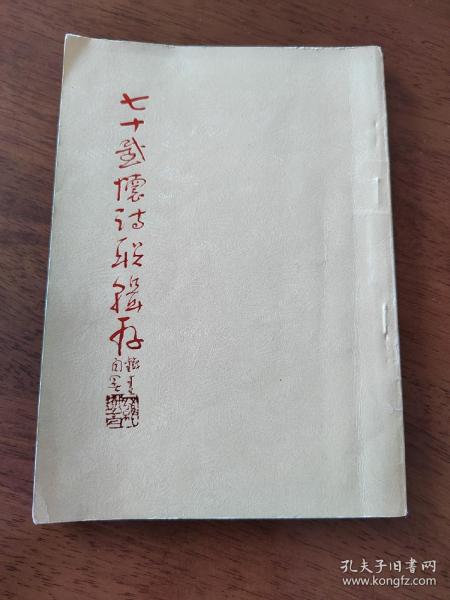 七十感怀诗联辑存
自署
孔夫子旧书网
www.kongfz.com